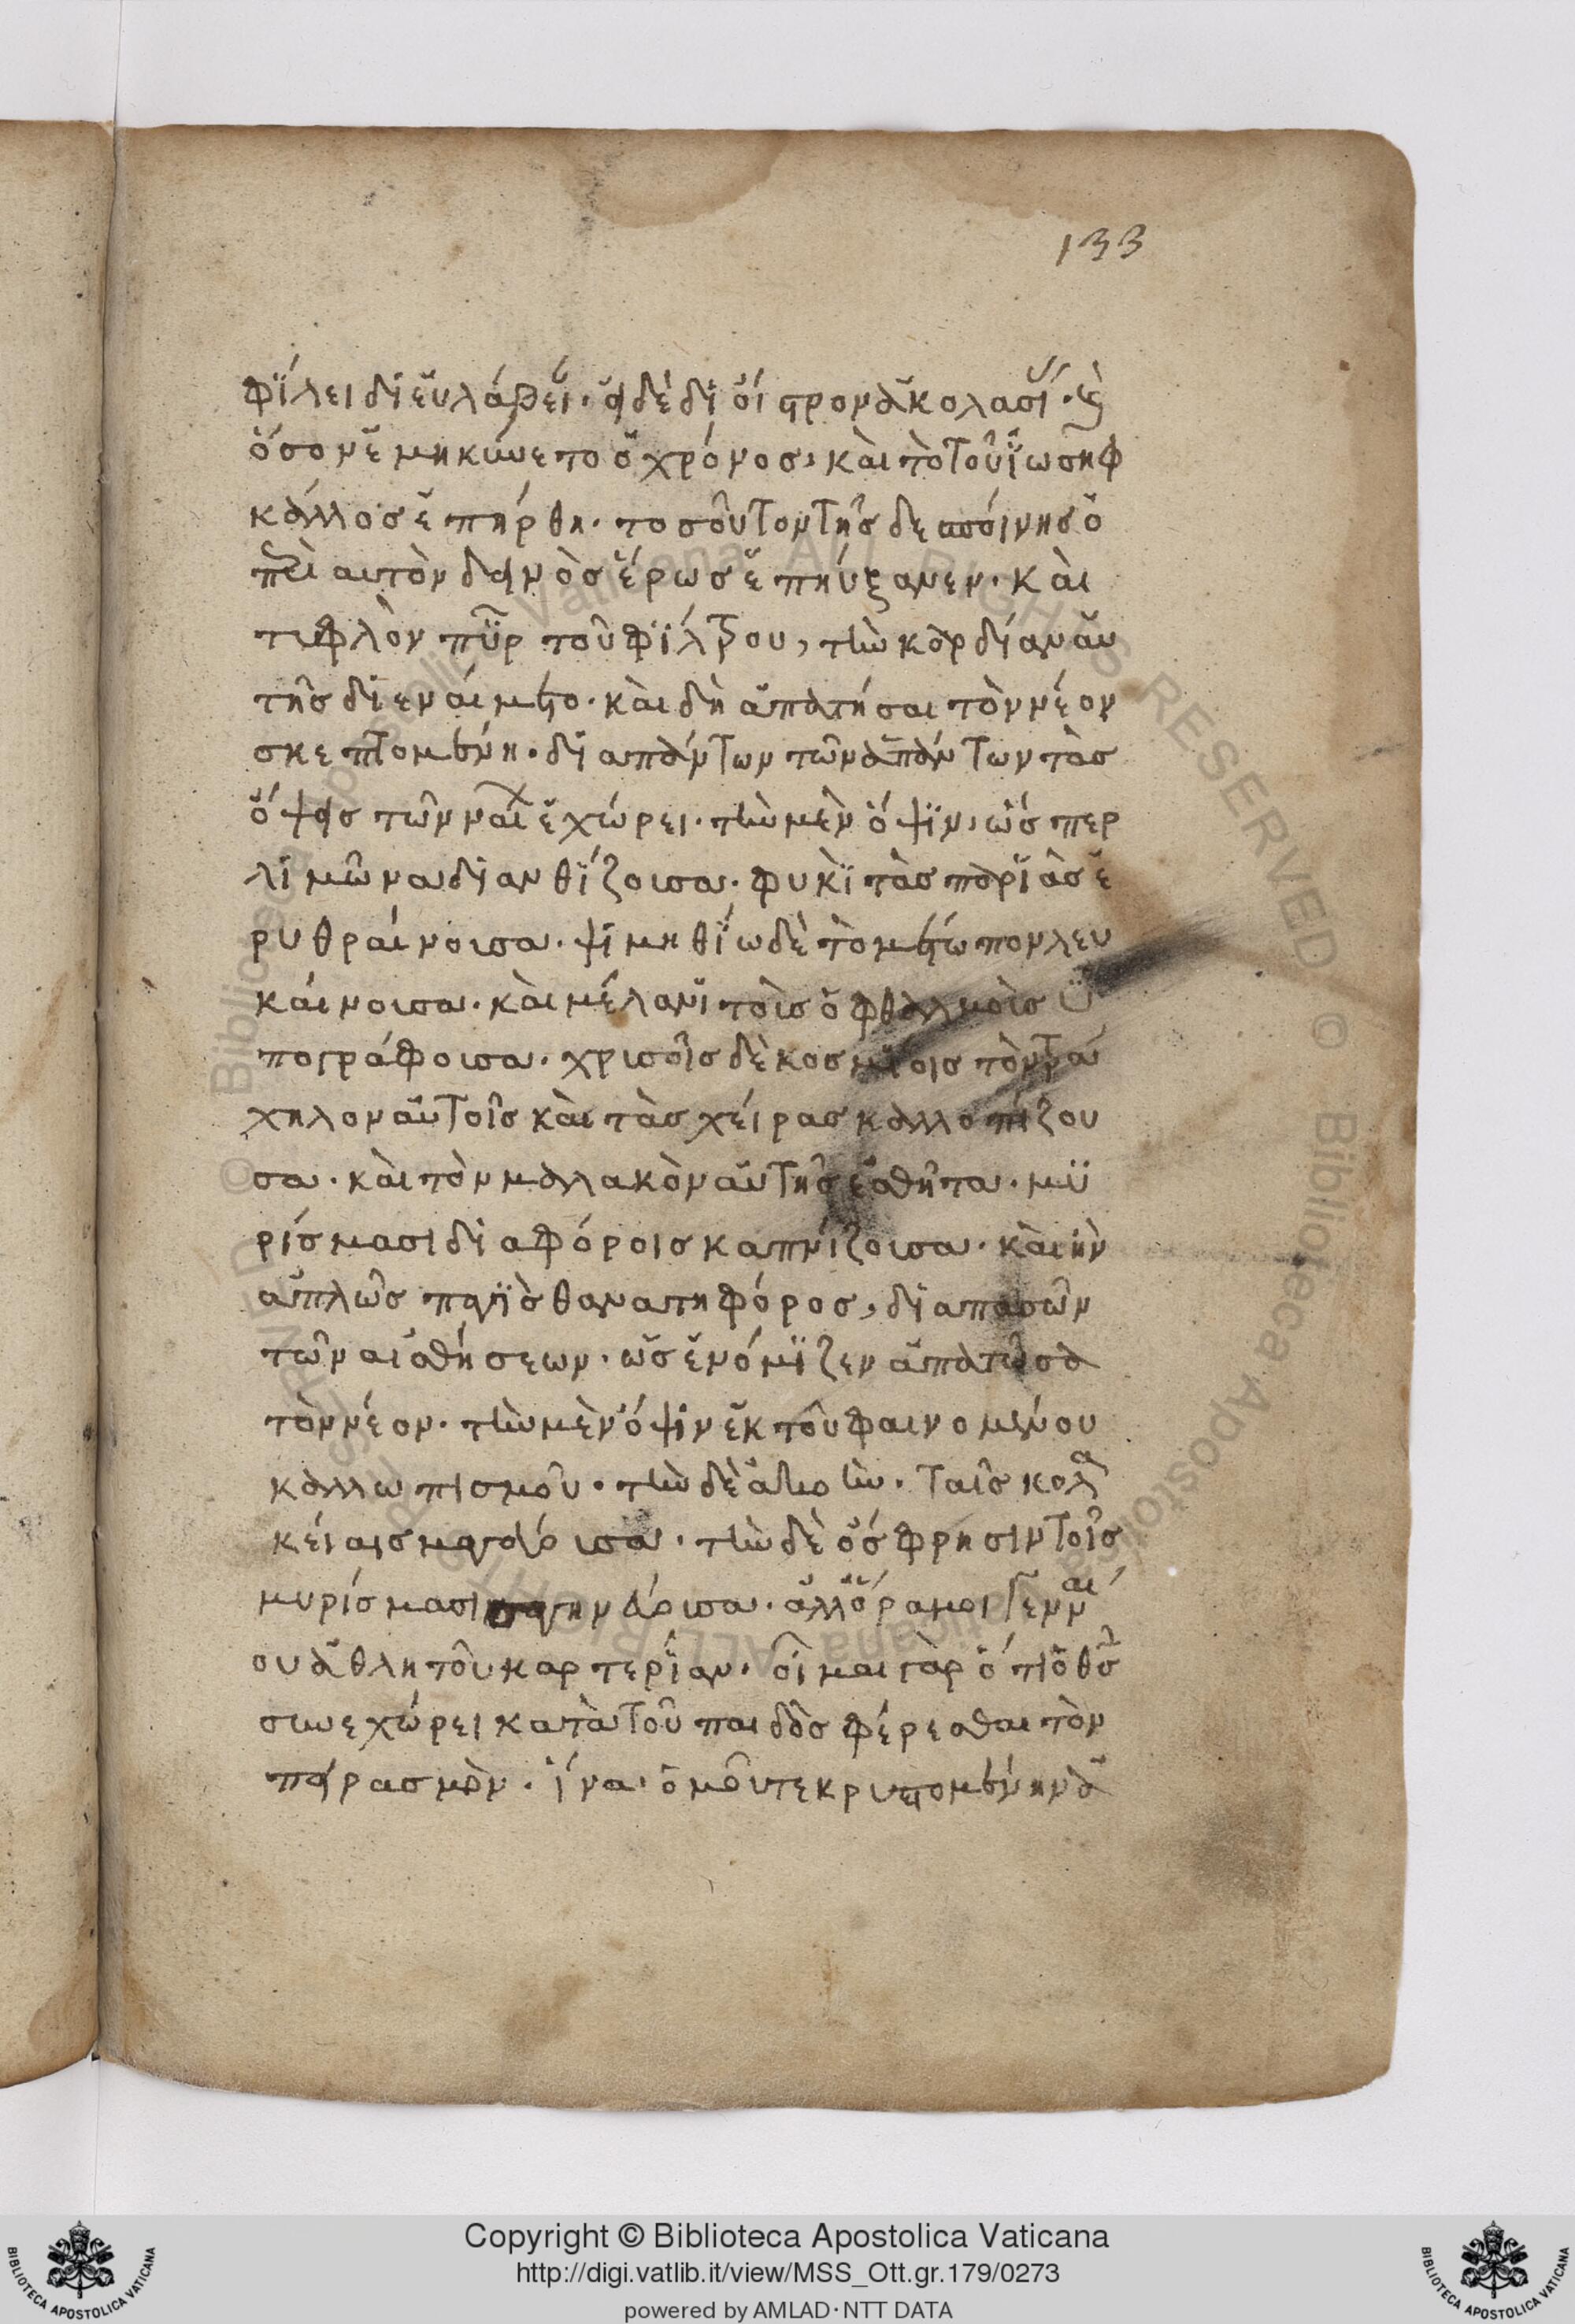 133
φΐλει δι εὐλάβει· ἡ δὲ δι οἱ
ὅσον ἐμηκύνετο ὁ χρόνος, καὶ τὸ τοῦ ϊωσηφ
κάλλος ἐπήρθη· τοσοῦτον τῆς δεσποίνης ὁ
περὶ αυτὸν δεινὸς ἔρως ἐπηύξανεν· καὶ
τυφλὸν πῦρ τοῦ φΐλτρου, τὴν καρδίαν αὐ
τῆς διεναίμετο· καὶ δὴ ἀπατήσαι τὸν νέον
σκεπτομένη· δι απάντων τῶν ἁπάντων τὰς
ὄψεις τῶν ἐχώρει· τὴν μὲν ὄψϊν, ὥσπερ
λιμῶνα διανθΐζουσα· φυκΐ τὰς παρϊὰς ἐ
ρυθραίνουσα· ψιμηθΐω δὲ τὸ μετώπον λευ
καίνουσα· καὶ μέλανϊ τοὶς ὀφθαλμοὶς ὑ
πογράφουσα· χρυσοῖς δὲ κοσμΐοις τὸν τρά
χηλον αὐτοῖς καὶ τὰς χείρας καλλοπίζου
σα· καὶ τὸν μαλακὸν αὐτῆς ἐσθῆτα· μϋ
ρίσμασι διαφόροις καπνίζουσα· καὶ ἠν
ἁπλῶς παγϊς θανατηφόρος, δι απασῶν
τῶν αἰσθήσεων· ὡς ἐνόμϊζεν ἀπατῶσα
τὸν νέον· τὴν μὲν ὄψιν ἐκ τοῦ φαινομένου
καλλωπισμοῦ· τὴν δὲ ἀκοὴν· ταῖς κολα
κείαις μαγεύουσα· τὴν δὲ ὄσφρησιν τοῖς
μυρίσμασι ἀλλ ὅρα μοι γενναί
ου ἀθλητοῦ καρτερΐαν· οἶμαι γὰρ ὅτι ὁ θεὸς
συνεχώρει κατὰ τοῦ παιδὸς φέρεσθαι τὸν
πειρασμὸν· ἵνα· ὁμοῦ τε κρυπτομένην ἀ
Copyright © Biblioteca Apostolica Vaticana
http://digi.vatlib.it/view/MSS_Ott.gr.179/0273
powered by AMLAD · NTT DATA
BIBLIOTECA APOSTOLICA VATICANA
BIBLIOTECA APOSTOLICA VATICANA